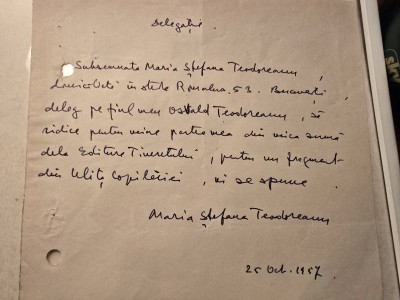 Delegație.
Subsemnata Maria Ștefana Teodoreanu,
domiciliată în str. Romulus 53. București,
deleg pe fiul meu Osvald Teodoreanu, să
ridice pentru mine partea mea din mica sumă
dela Editura Tineretului, pentru un fragment
din Ulița Copilăriei, mi se spune.
Maria Ștefana Teodoreanu
25 Oct. 1957.